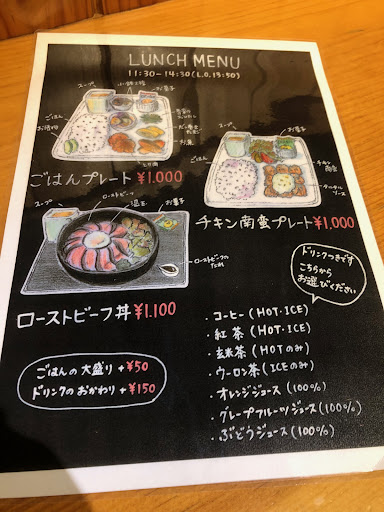 LUNCH MENU
11:30-14:30 (L.O.13:50)
スープ
小鉢4種
お菓子
ごはん
お漬物
お魚
ごはんプレート ¥1.000
スープ
お菓子
ごはん
チキン南蛮
タルタルソース
チキン南蛮プレート ¥1,000
スープ
ローストビーフ
温玉
お菓子
ローストビーフのたれ
ローストビーフ丼 ¥1.100
ドリンクつきです
こちらから
お選びください
・コーヒー (HOT・ICE)
・紅茶 (HOT・ICE)
・玄米茶 (HOTのみ)
・ウーロン茶 (ICEのみ)
・オレンジジュース (100%)
・グレープフルーツジュース (100%)
・ぶどうジュース (100%)
ごはんの大盛り +¥50
ドリンクのおかわり +¥150